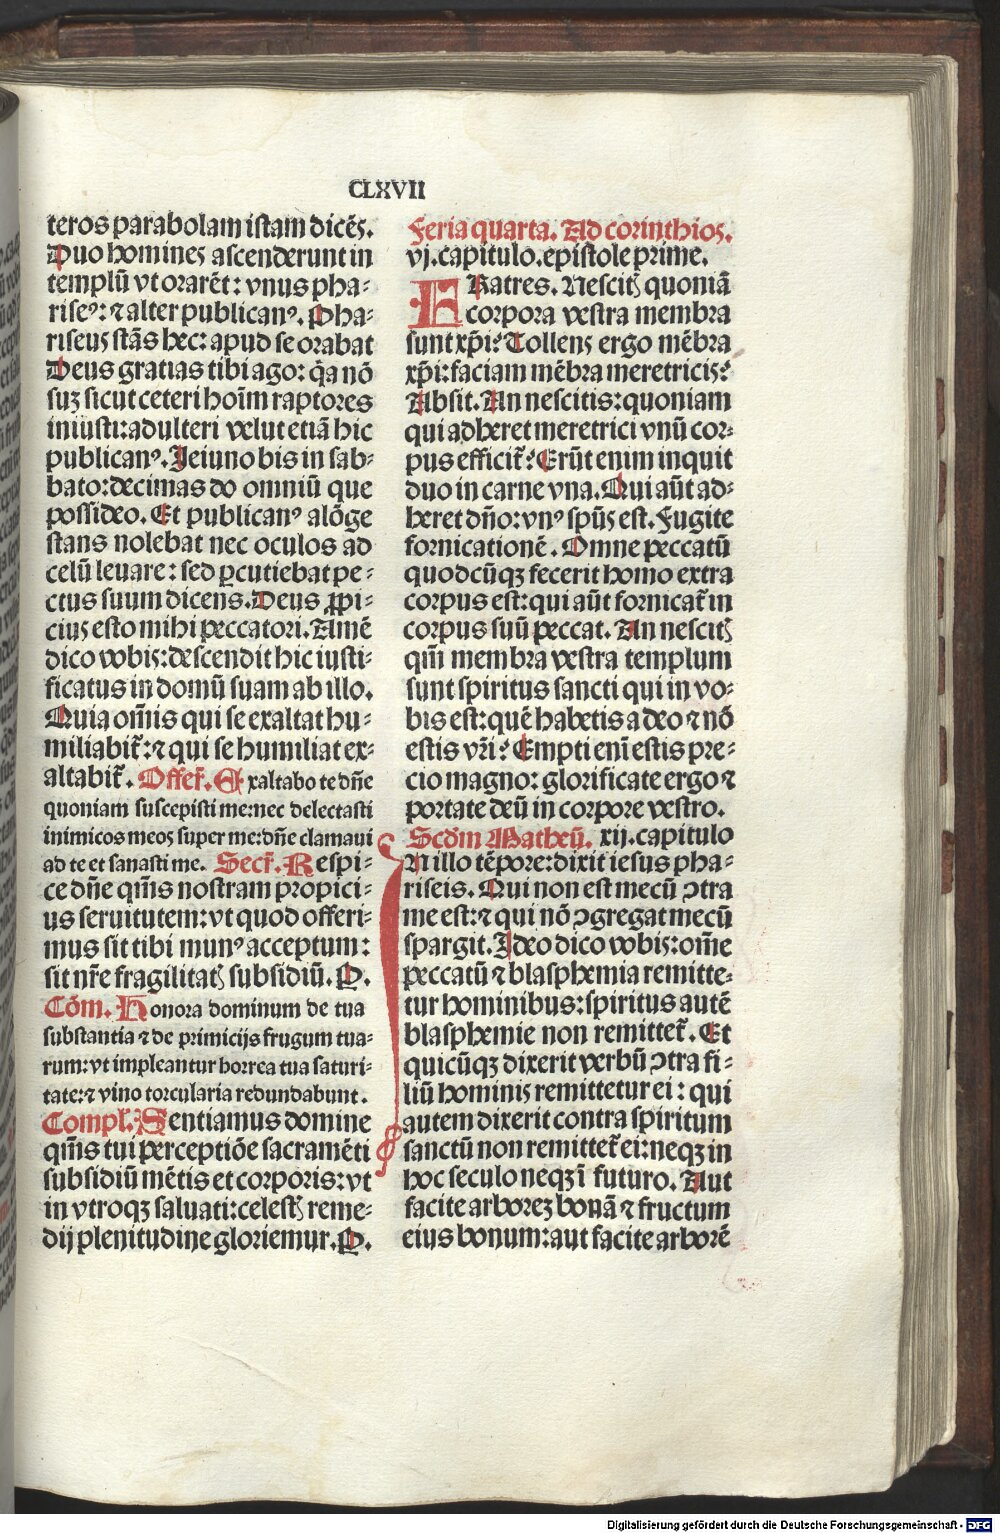 CLXVII
teros parabolam istam dicēs.
Duo homines ascenderunt in
templū vt orarēt: vnus pha-
riseꝰ: ⁊ alter publicanꝰ. Pha-
riseus stās hec: apud se orabat
Deus gratias tibi ago: q̄a nō
suꝫ sicut ceteri hoīm raptores
iniusti: adulteri velut etiā hic
publicanꝰ. Jeiuno bis in sab-
bato: decimas do omniū que
possideo. Et publicanꝰ alōge
stans nolebat nec oculos ad
celū leuare: sed ꝑcutiebat pe-
ctus suum dicens. Deus ꝓpi-
cius esto mihi peccatori. Amē
dico vobis: descendit hic iusti-
ficatus in domū suam ab illo.
Quia om̄is qui se exaltat hu-
miliabit̄: ⁊ qui se humiliat ex-
altabit̄. Offer̄. Exaltabo te dn̄e
quoniam suscepisti me: nec delectasti
inimicos meos super me: dn̄e clamaui
ad te et sanasti me. Secr̄. Respi-
ce dn̄e qm̄s nostram propici-
us seruitutem: vt quod offeri-
mus sit tibi munꝰ acceptum:
sit nr̄e fragilitatꝭ subsidiū. P.
Cōm. Honora dominum de tua
substantia ⁊ de primicijs frugum tua-
rum: vt impleantur horrea tua saturi-
tate: ⁊ vino torcularia redundabunt.
Compl. Sentiamus domine
qm̄s tui perceptiōe sacramēti
subsidiū mētis et corporis: vt
in vtroqꝫ saluati: celestꝭ reme-
dij plenitudine gloriemur. P.
Feria quarta. Ad corinthios.
vj. capitulo. epistole prime.
FRatres. Nescitꝭ quoniā
corpora vestra membra
sunt xp̄i? Tollens ergo mēbra
xp̄i: faciam mēbra meretricis?
Absit. An nescitis: quoniam
qui adheret meretrici vnū cor-
pus efficit̄? Erūt enim inquit
duo in carne vna. Qui aūt ad-
heret dn̄o: vnꝰ spūs est. Fugite
fornicationē. Omne peccatū
quodcūqꝫ fecerit homo extra
corpus est: qui aūt fornicat̄ in
corpus suū peccat. An nescitꝭ
qm̄ membra vestra templum
sunt spiritus sancti qui in vo-
bis est: quē habetis a deo ⁊ nō
estis vr̄i? Empti eni estis pre-
cio magno: glorificate ergo ⁊
portate deū in corpore vestro.
Scdm̄ Matheū. xij. capitulo
IN illo tēpore: dixit iesus pha-
riseis. Qui non est mecū ꝯtra
me est: ⁊ qui nō ꝯgregat mecū
spargit. Ideo dico vobis: om̄e
peccatū ⁊ blasphemia remitte-
tur hominibus: spiritus autē
blasphemie non remittet̄. Et
quicūqꝫ dixerit verbū ꝯtra fi-
liū hominis remittetur ei: qui
autem dixerit contra spiritum
sanctū non remittet̄ ei: neqꝫ in
hoc seculo neqꝫ ī futuro. Aut
facite arboreꝫ bonā ⁊ fructum
eius bonum: aut facite arborē
Digitalisierung gefördert durch die Deutsche Forschungsgemeinschaft - DFG